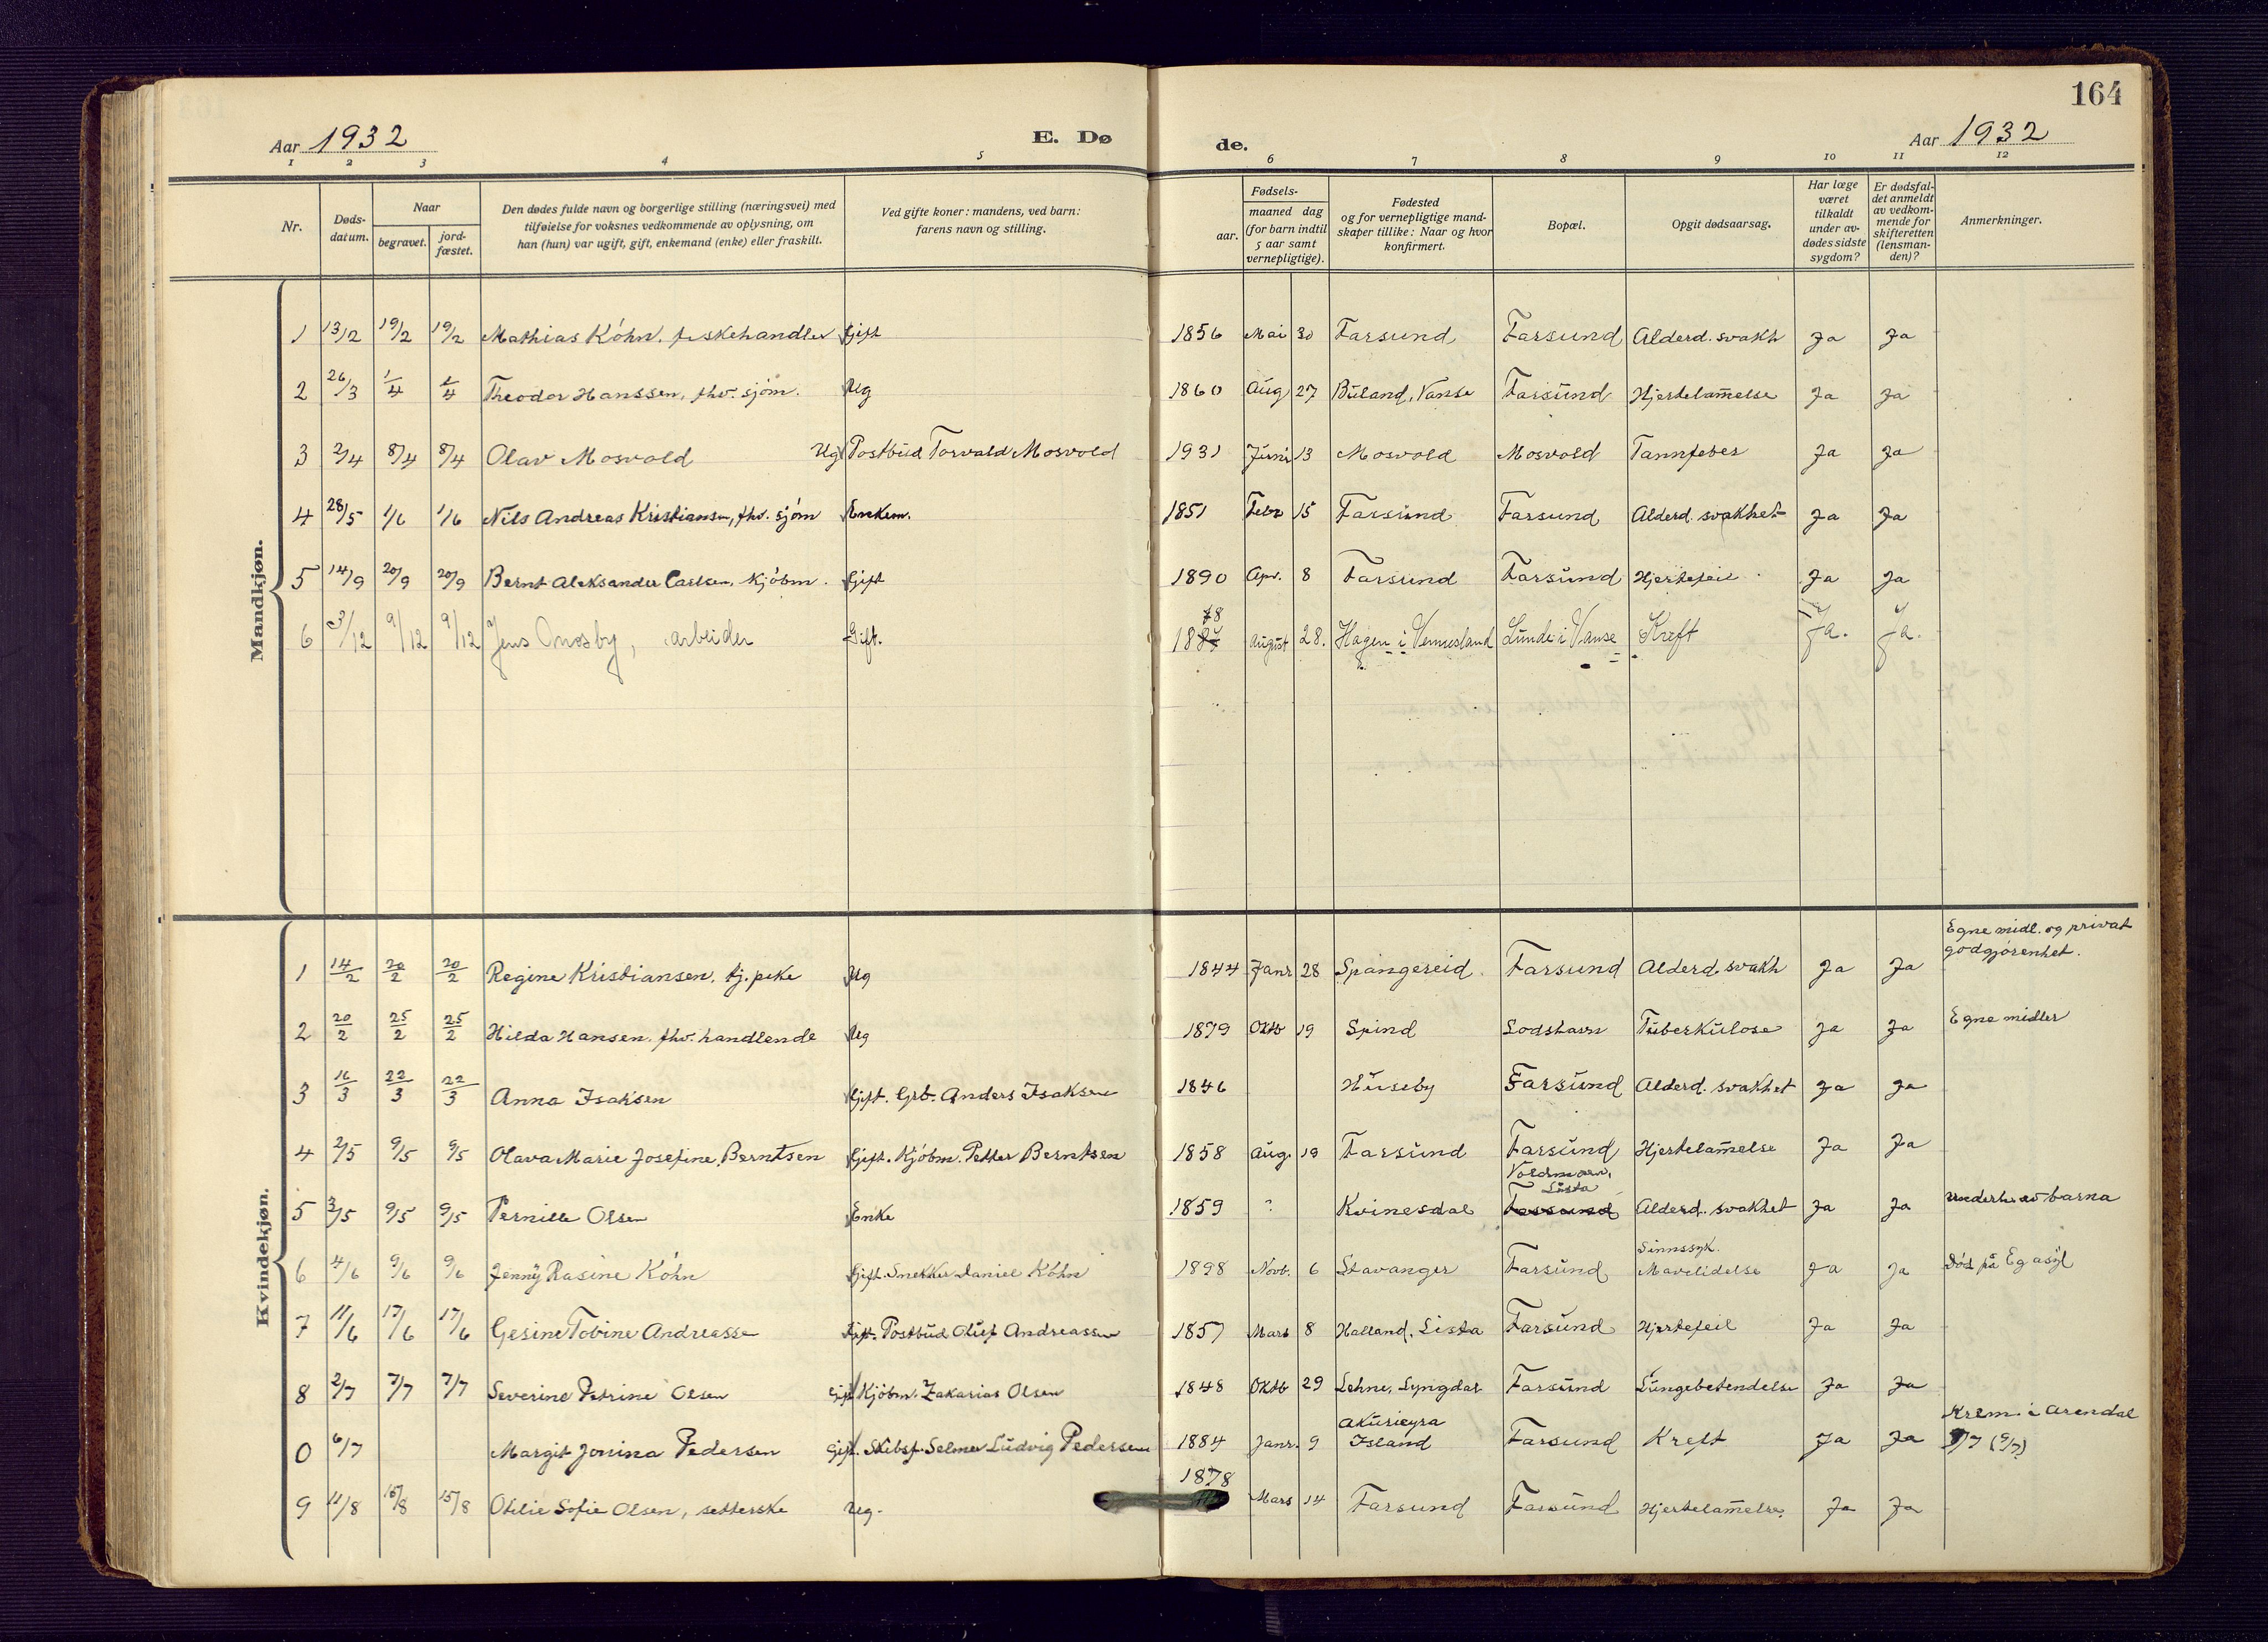 164
Aar 1932 E. Dø de. Aar 1932
1 2 3 4 5 6 7 8 9 10 11 12
Nr.
Døds-datum.
Naar
begravet.
jord-fæstet.
Den dødes fulde navn og borgerlige stilling (næringsvei) med
tilføielse for voksnes vedkommende av oplysning, om
han (hun) var ugift, gift, enkemand (enke) eller fraskilt.
Ved gifte koner: mandens, ved barn:
farens navn og stilling.
Fødsels-
aar.
maaned dag
(for barn indtil
5 aar samt
vernepligtige).
Fødested
og for vernepligtige mand-
skaper tillike: Naar og hvor
konfirmert.
Bopæl.
Opgit dødsaarsag.
Har læge
været
tilkaldt
under av-
dødes sidste
sygdom?
Er dødsfal-
det anmeldt
av vedkom-
mende for
skifteretten
(lensman-
den)?
Anmerkninger.
Mandkjøn.
1 13/2 19/2 19/2 Mathias Köhn. fiskehandler Gift 1856 Mai 30 Farsund Farsund Alderd. svakh Ja Ja
2 26/3 1/4 1/4 Theodor Hanssen, fhv. sjøm. Ug 1860 Aug 27 Buland, Vanse Farsund Hjertelam̄else Ja Ja
3 2/4 8/4 8/4 Olav Mosvold Ug Postbud Torvald Mosvold 1931 Juni 13 Mosvold Mosvold Tannfeber Ja Ja
4 28/5 1/6 1/6 Nils Andreas Kristiansen, fhv. sjøm Enkem. 1851 Febr 15 Farsund Farsund Alderd. svakhet Ja Ja
5 14/9 20/9 20/9 Bernt Aleksander Carlsen. Kjøbm. Gift 1890 Apr. 8 Farsund Farsund Hjertefeil Ja Ja
78
6 3/12 9/12 9/12 Jens Omosby, arbeider Gift. 18 August 28. Hagen i Vennesland Lunde i Vanse Kreft Ja. Ja.
Kvindekjøn.
Egne midl. og privat
godgjørenhet.
1 14/2 20/2 20/2 Regine Kristiansen. tj. pike Ug 1844 Janr 28 Spangereid. Farsund Alderd. svakh Ja Ja
2 20/2 25/2 25/2 Hilda Hansen. fhv. handlende Ug 1879 Oktb 19 Spind Lodshavn Tuberkulose Ja Ja Egne midler
3 16/3 22/3 22/3 Anna Isaksen Gift. Grb. Anders Isaksen 1846 Huseby Farsund Alderd. svakhet Ja Ja
4 2/5 9/5 9/5 Olava Marie Josefine Berntsen Gift. Kjøbm. Petter Berntsen 1858 Aug. 19 Farsund Farsund Hjertelam̄else Ja Ja
Lista
5 3/5 9/5 9/5 Pernille Olsen Enke 1859 ? Kvinesdal Farsund Alderd. svakhet Ja Ja underh. av barna
Sinnssyk.
6 4/6 9/6 9/6 Jenny Rasine Köhn Gift. Snekker Daniel Köhn 1898 Novb. 6 Stavanger Farsund Mavelidelse Ja Ja Død på Eg asyl
7 11/6 17/6 17/6 Gesine Tobine Andreasse Gift. Postbud Oluf Andreassen 1857 Mars 8 Halland, Lista Farsund Hjertefeil Ja Ja
8 2/7 7/7 7/7 Severine Petrine Olsen Gift Kjøbm. Zakarias Olsen 1848 Oktb 29 Lehne, Lyngdal Farsund Lungebetendelse Ja Ja
Akurieyra
Krem. i Arendal
0 6/7 Margit Jonina Pedersen Gift. Skibsf. Selmer Ludvig Pedersen 1884 Janr. 9 Island Farsund Kreft Ja Ja 9/7 (9/7)
1878
9 11/8 15/8 15/8 Otilie Sofie Olsen, setterske Ug. Mars 14 Farsund Farsund Hjertelam̄else. Ja Ja